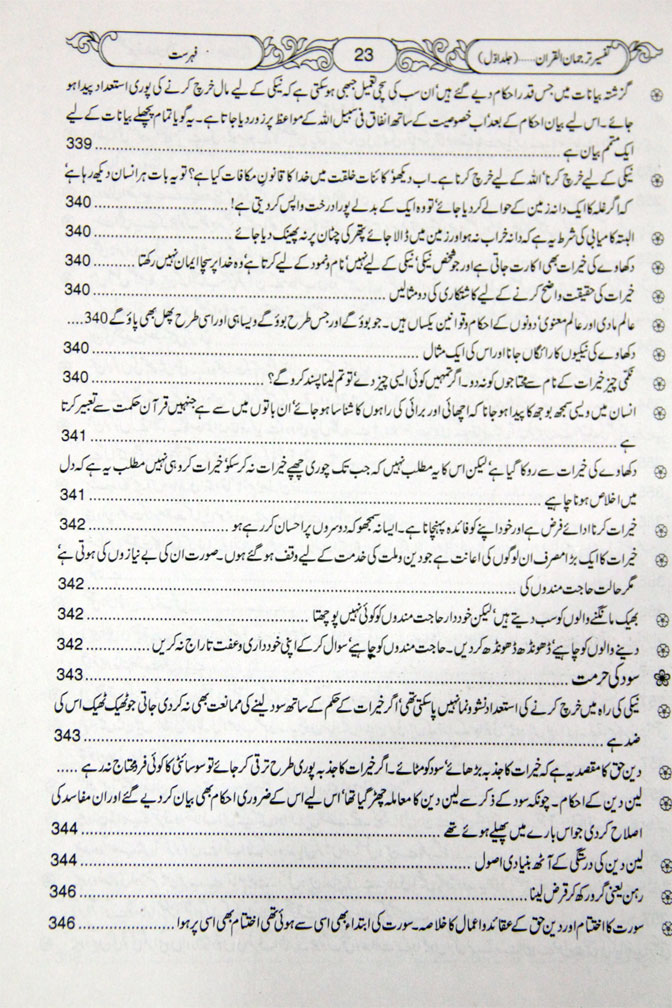 تفسیر ترجمان القران.....(جلد اوّل)
23
فہرست
گزشتہ بیانات میں جس قدر احکام دیے گئے ہیں' ان سب کی سچی تعمیل جبھی ہو سکتی ہے کہ نیکی کے لیے مال خرچ کرنے کی پوری استعداد پیدا ہو
جائے۔ اس لیے بیان احکام کے بعد' اب خصوصیت کے ساتھ انفاق فی سبیل اللہ کے مواعظ پر زور دیا جاتا ہے۔ یہ گویا تمام پچھلے بیانات کے لیے
ایک متمم بیان ہے ........ 339
نیکی کے لیے خرچ کرنا' اللہ کے لیے خرچ کرنا ہے۔ اب دیکھو' کائنات خلقت میں خدا کا قانونِ مکافات کیا ہے؟ تو یہ بات ہر انسان دیکھ رہا ہے'
کہ اگر غلہ کا ایک دانہ زمین کے حوالے کر دیا جائے' تو وہ ایک کے بدلے پورا درخت واپس کر دیتی ہے! ........ 340
البتہ کامیابی کی شرط یہ ہے کہ دانہ خراب نہ ہو اور زمین میں ڈالا جائے پتھر کی چٹان پر نہ پھینک دیا جائے ........ 340
دکھاوے کی خیرات بھی اکارت جاتی ہے اور جو شخص نیکی' نیکی کے لیے نہیں' نام و نمود کے لیے کرتا ہے' وہ خدا پر سچا ایمان نہیں رکھتا ........ 340
خیرات کی حقیقت واضح کرنے کے لیے کاشتکاری کی دو مثالیں ........ 340
عالم مادی اور عالم معنوی' دونوں کے احکام و قوانین یکساں ہیں۔ جو بوؤ گے اور جس طرح بوؤ گے ویسا ہی اور اسی طرح پھل بھی پاؤ گے 340....
دکھاوے کی نیکیوں کا رائگاں جانا اور اس کی ایک مثال ........ 340
نکمّی چیز خیرات کے نام سے محتاجوں کو نہ دو۔ اگر تمہیں کوئی ایسی چیز دے' تو تم لینا پسند کرو گے؟ ........ 340
انسان میں ویسی سمجھ بوجھ کا پیدا ہو جانا کہ اچھائی اور برائی کی راہوں کا شناسا ہو جائے' ان باتوں میں سے ہے جنہیں قرآن حکمت سے تعبیر کرتا
ہے ........ 341
دکھاوے کی خیرات سے روکا گیا ہے' لیکن اس کا یہ مطلب نہیں کہ جب تک چوری چھپے خیرات نہ کر سکو' خیرات کرو ہی نہیں مطلب یہ ہے کہ دل
میں اخلاص ہونا چاہیے ........ 341
خیرات کرنا ادائے فرض ہے اور خود اپنے کو فائدہ پہنچانا ہے۔ ایسا نہ سمجھو کہ دوسروں پر احسان کر رہے ہو ........ 342
خیرات کا ایک بڑا مصرف ان لوگوں کی اعانت ہے جو دین و ملت کی خدمت کے لیے وقف ہو گئے ہوں۔ صورت ان کی بے نیازوں کی ہوتی ہے'
مگر حالت حاجت مندوں کی ........ 342
بھیک مانگنے والوں کو سب دیتے ہیں' لیکن خود دار حاجت مندوں کو کوئی نہیں پوچھتا ........ 342
دینے والوں کو چاہیے' ڈھونڈھ ڈھونڈھ کر دیں۔ حاجت مندوں کو چاہیے' سوال کر کے اپنی خودداری و عفت تاراج نہ کریں ........ 342
سود کی حرمت ........ 343
نیکی کی راہ میں خرچ کرنے کی استعداد نشوونما نہیں پا سکتی تھی' اگر خیرات کے حکم کے ساتھ سود لینے کی ممانعت بھی نہ کر دی جاتی جو ٹھیک ٹھیک اس کی
ضد ہے ........ 343
دین حق کا مقصد یہ ہے کہ خیرات کا جذبہ بڑھائے' سود کو مٹائے۔ اگر خیرات کا جذبہ پوری طرح ترقی کر جائے تو سوسائٹی کا کوئی فرد محتاج نہ رہے .....
لین دین کے احکام۔ چونکہ سود کے ذکر سے لین دین کا معاملہ چھڑ گیا تھا' اس لیے اس کے ضروری احکام بھی بیان کر دیے گئے اور ان مفاسد کی
اصلاح کر دی جو اس بارے میں پھیلے ہوئے تھے ........ 344
لین دین کی درستگی کے آٹھ بنیادی اصول ........ 344
رہن یعنی گرو رکھ کر قرض لینا ........ 346
سورت کا اختتام اور دین حق کے عقائد و اعمال کا خلاصہ۔ سورت کی ابتداء بھی اسی سے ہوئی تھی اختتام بھی اسی پر ہوا ........ 346